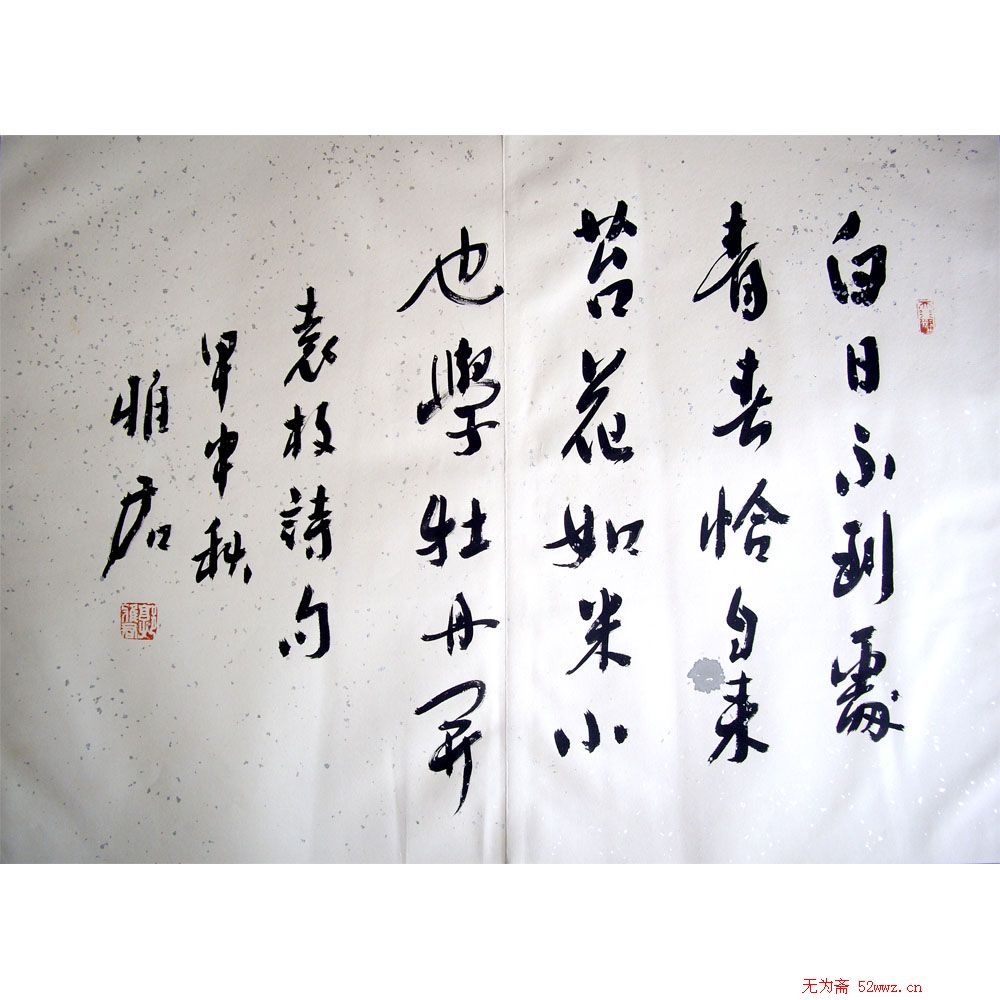 白日不到處
青春恰自来
苔花如米小
也學牡丹开
袁枚詩句
甲申秋
雅君
无为斋 52wwz.cn